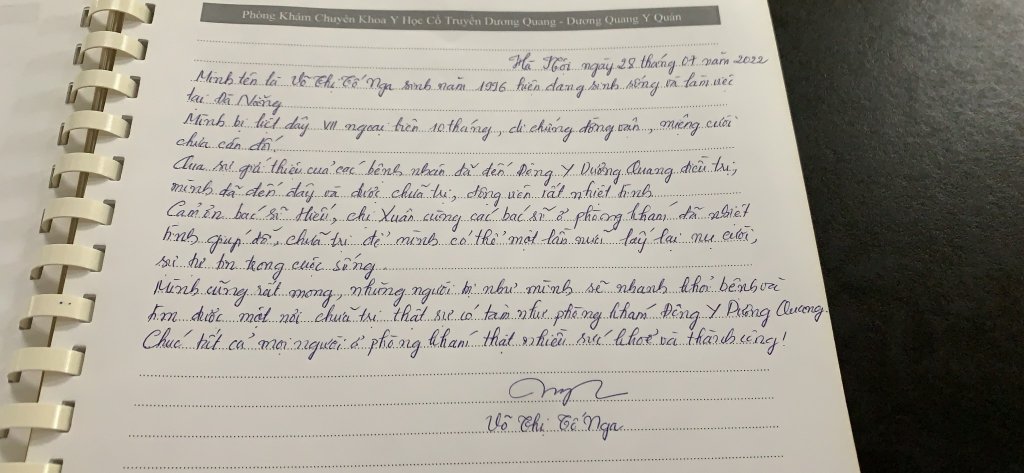 Phòng Khám Chuyên Khoa Y Học Cổ Truyền Dương Quang - Dương Quang Y Quán
Hà Nội ngày 28 tháng 07 năm 2022
Mình tên là Võ Thị Tố Nga sinh năm 1996 hiện đang sinh sống và làm việc
tại Đà Nẵng
Mình bị liệt dây VII ngoại biên 10 tháng, di chứng đồng vận, miệng cười
chưa cân đối.
Qua sự giới thiệu của các bệnh nhân đã đến Đông Y Dương Quang điều trị,
mình đã đến đây và được chữa trị, động viên rất nhiệt tình
Cảm ơn bác sĩ Hiếu, chị Xuân cùng các bác sĩ ở phòng khám đã nhiệt
tình giúp đỡ, chữa trị để mình có thể một lần nữa lấy lại nụ cười,
sự tự tin trong cuộc sống.
Mình cũng rất mong, những người bị như mình sẽ nhanh khỏi bệnh và
tìm được một nơi chữa trị thật sự có tâm như phòng khám Đông Y Dương Quang.
Chúc tất cả mọi người ở phòng khám thật nhiều sức khoẻ và thành công!
Võ Thị Tố Nga